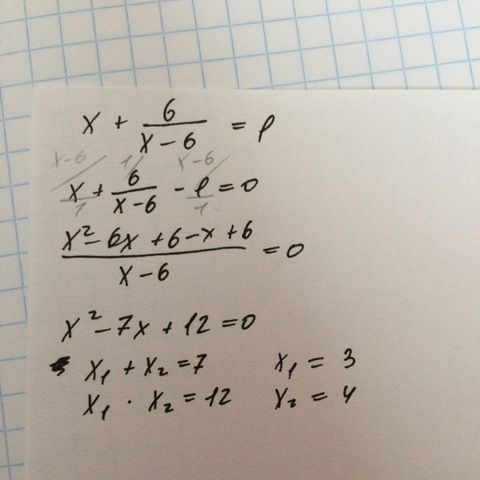 x + 6/(x-6) = l
x-6 1 x-6
x/1 + 6/(x-6) - l/1 = 0
(x² - 6x + 6 - x + 6)/(x-6) = 0
x² - 7x + 12 = 0
x₁ + x₂ = 7 x₁ = 3
x₁ · x₂ = 12 x₂ = 4